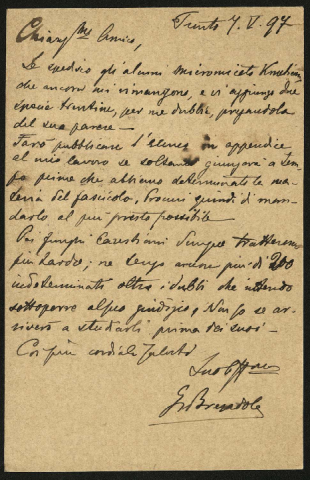 Trento 7. V. 97
Chiarmo Amico,
Le spedisco gli alcuni micromiceti
che ancora mi rimangono, e vi aggiungo due
specie trentine, per me dubbie, pregandola
del suo parere —
Farò pubblicare l'elenco in appendice
al mio lavoro se soltanto giungerà a tem-
po prima che abbiamo determinato la ma-
teria del fascicolo, procuri quindi di man-
darlo al più presto possibile
Pei funghi Carestiani
più tardi; ne tengo ancora più di 200
indeterminati oltre i dubbi che intendo
sottoporre al suo giudizio, Non so se ar-
riverò a studiarli prima dei suoi —
Coi più cordiali saluti
Suo affmo
G Bresadola